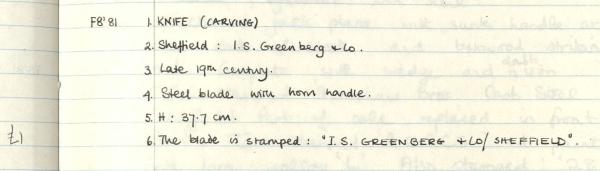 F8'81 1. KNIFE (CARVING)
2. Sheffield : I.S. Greenberg + Co.
3. Late 19th century.
4. Steel blade with horn handle.
5. H : 37.7 cm.
£1 6. The blade is stamped : "I.S. GREENBERG + CO/ SHEFFIELD".